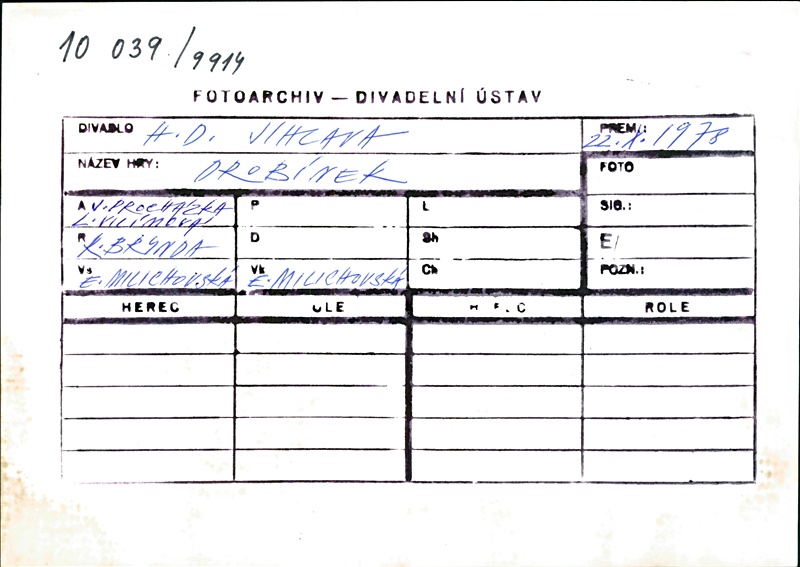 10 039/9914
FOTOARCHIV — DIVADELNÍ ÚSTAV
DIVADLO H.D. JIHLAVA
PREM.: 22.X.1978
NÁZEV HRY: DROBÍNEK
FOTO
A V. PROCHÁZKA
L. VILÍMOVÁ
P
L
SIG.:
R K. BRÝNDA
D
Sh
E/
Vs E. MILICHOVSKÁ
Vk E. MILICHOVSKÁ
Ch
POZN.:
HEREC
ROLE